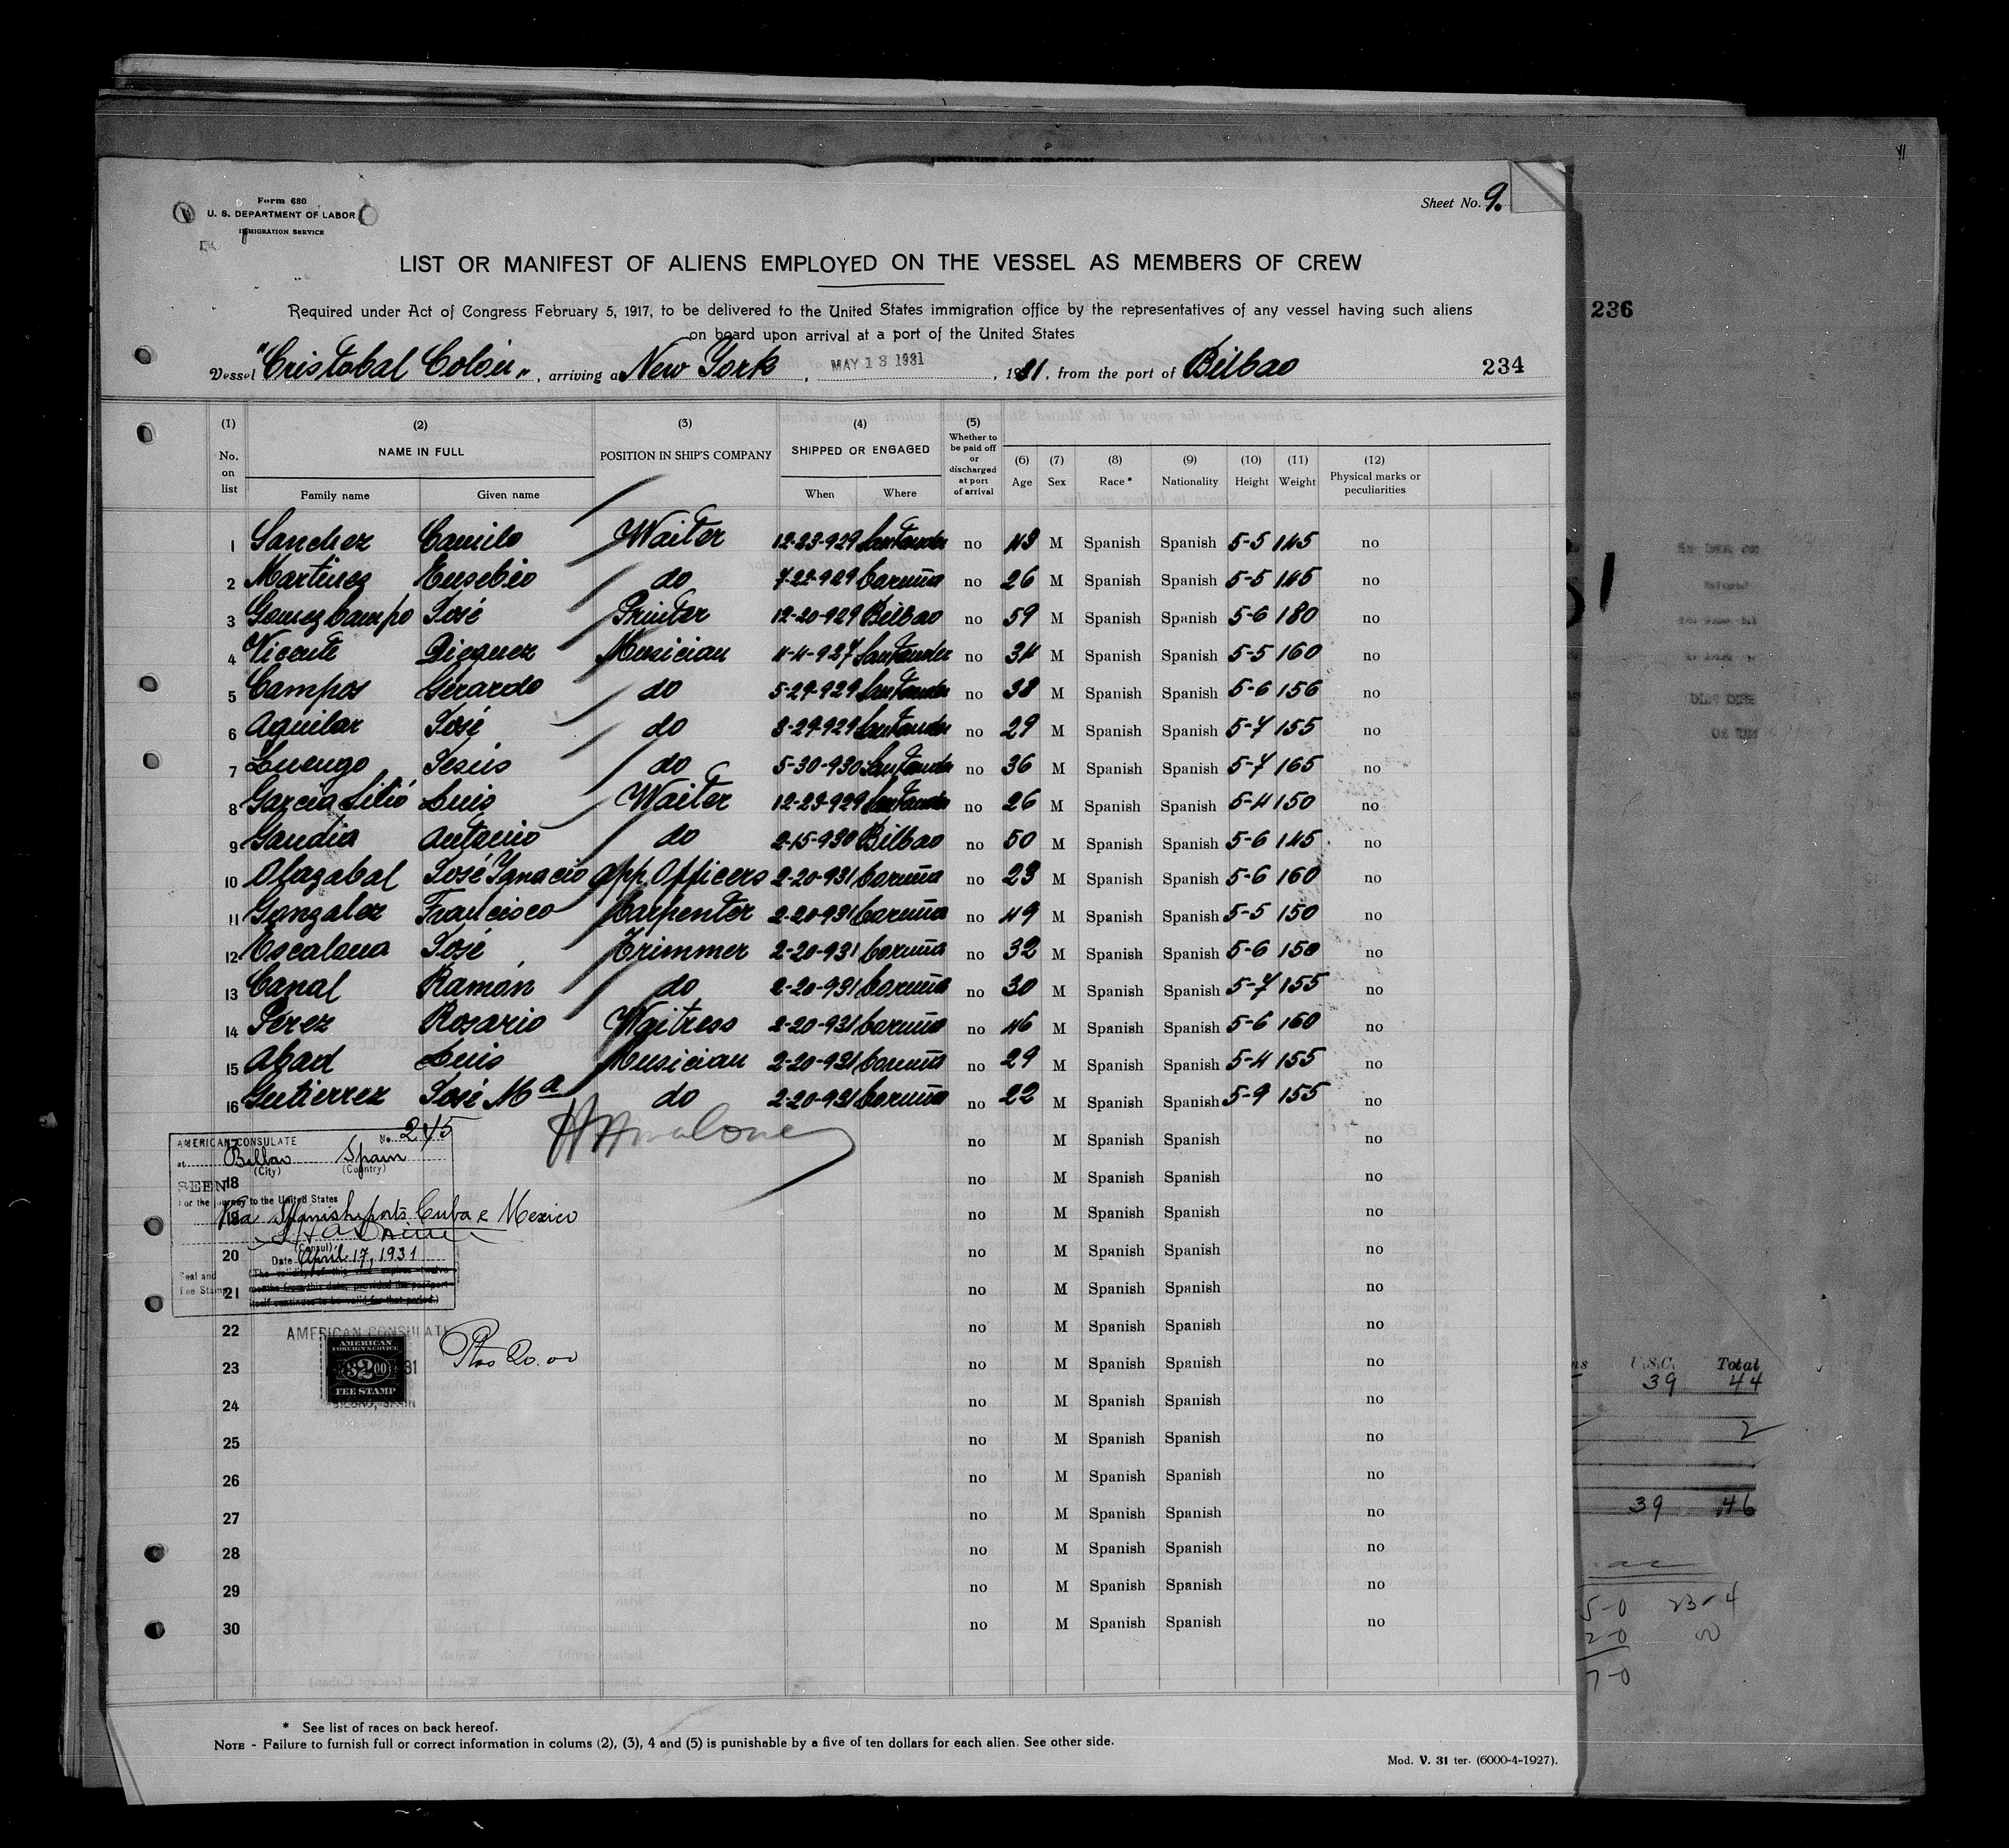 Form 680
U. S. DEPARTMENT OF LABOR
IMMIGRATION SERVICE
Sheet No. 9.
LIST OR MANIFEST OF ALIENS EMPLOYED ON THE VESSEL AS MEMBERS OF CREW
Required under Act of Congress February 5, 1917, to be delivered to the United States immigration office by the representatives of any vessel having such aliens
on board upon arrival at a port of the United States
Vessel "Cristobal Colón", arriving a New York, MAY 13 1931, 1931, from the port of Bilbao 234
(1) No. on list
(2) NAME IN FULL Family name Given name
(3) POSITION IN SHIP'S COMPANY
(4) SHIPPED OR ENGAGED When Where
(5) Whether to be paid off or discharged at port of arrival
(6) Age (7) Sex (8) Race* (9) Nationality (10) Height (11) Weight (12) Physical marks or peculiarities
1 Sanchez Camilo Waiter 12-23-929 Santander no 43 M Spanish Spanish 5-5 145 no
2 Martinez Eusebio do 7-22-929 Coruña no 26 M Spanish Spanish 5-5 145 no
3 Gomez Campo José Printer 12-20-929 Bilbao no 59 M Spanish Spanish 5-6 180 no
4 Vicente Dieguez Musician 4-4-927 Santander no 34 M Spanish Spanish 5-5 160 no
5 Campos Gerardo do 5-29-929 Santander no 38 M Spanish Spanish 5-6 156 no
6 Aguilar José do 8-29-929 Santander no 29 M Spanish Spanish 5-7 155 no
7 Luengo Jesús do 5-30-930 Santander no 36 M Spanish Spanish 5-7 165 no
8 Garcia Lilió Luis Waiter 12-23-929 Santander no 26 M Spanish Spanish 5-4 150 no
9 Gandia Antonio do 2-15-930 Bilbao no 50 M Spanish Spanish 5-6 145 no
10 Olazabal José Ygnacio App. Officers 2-20-931 Coruña no 23 M Spanish Spanish 5-6 160 no
11 Gonzalez Francisco Carpenter 2-20-931 Coruña no 49 M Spanish Spanish 5-5 150 no
12 Escalona José Trimmer 2-20-931 Coruña no 32 M Spanish Spanish 5-6 150 no
13 Canal Ramón do 2-20-931 Coruña no 30 M Spanish Spanish 5-7 155 no
14 Perez Rosario Waitress 2-20-931 Coruña no 46 M Spanish Spanish 5-6 160 no
15 Abad Luis Musician 2-20-931 Coruña no 29 M Spanish Spanish 5-4 155 no
16 Gutierrez José Mª do 2-20-931 Coruña no 22 M Spanish Spanish 5-9 155 no
17 no M Spanish Spanish no
18 no M Spanish Spanish no
19 no M Spanish Spanish no
20 no M Spanish Spanish no
21 no M Spanish Spanish no
22 no M Spanish Spanish no
23 no M Spanish Spanish no
24 no M Spanish Spanish no
25 no M Spanish Spanish no
26 no M Spanish Spanish no
27 no M Spanish Spanish no
28 no M Spanish Spanish no
29 no M Spanish Spanish no
30 no M Spanish Spanish no
AMERICAN CONSULATE No. 245
at Bilbao Spain
(City) (Country)
SEEN
For the journey to the United States
Via Spanish ports Cuba & Mexico
(Consul)
Date April 17, 1931
(The validity of this visa expires twelve
months from this date, provided the passport
itself continues to be valid for that period.)
Seal and
Fee Stamp
AMERICAN CONSULATE
AMERICAN
FOREIGN SERVICE
$2.00
FEE STAMP
BILBAO, SPAIN
Ptas 20.00
* See list of races on back hereof.
NOTE - Failure to furnish full or correct information in colums (2), (3), 4 and (5) is punishable by a five of ten dollars for each alien. See other side.
Mod. V. 31 ter. (6000-4-1927).
236
U.S.C. Total
39 44
2
39 46
5-0 23-4
2-0
7-0